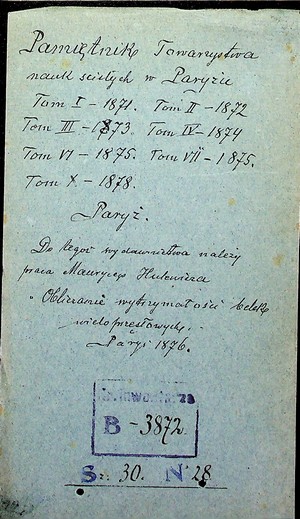 Pamiętnik Towarzystwa
nauk ścisłych w Paryżu
Tom I – 1871. Tom II – 1872
Tom III – 1873 Tom IV – 1874
Tom VI – 1875. Tom VII – 1875.
Tom X – 1878.
Paryż.
Do tegoż wydawnictwa należy
praca Maurycego
"Obliczanie wytrzymałości belek
wieloprzęsłowych".
Paryż 1876.
B – 3872
S. 30. N 28